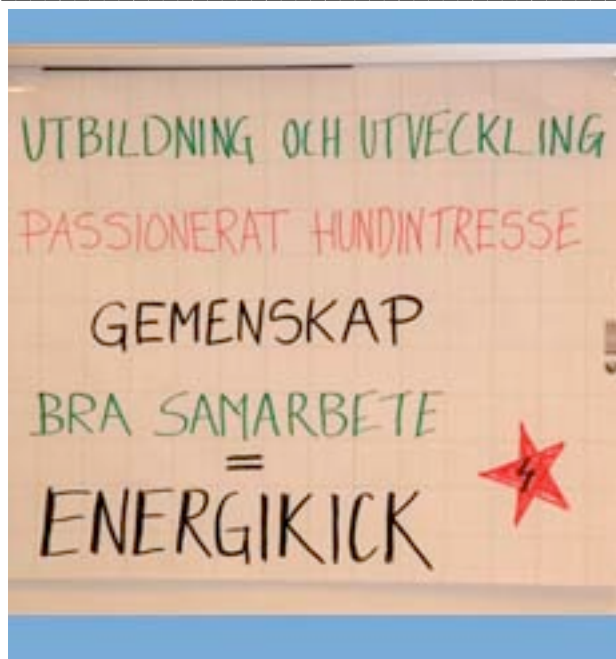 UTBILDNING OCH UTVECKLING
PASSIONERAT HUNDINTRESSE
GEMENSKAP
BRA SAMARBETE
=
ENERGIKICK